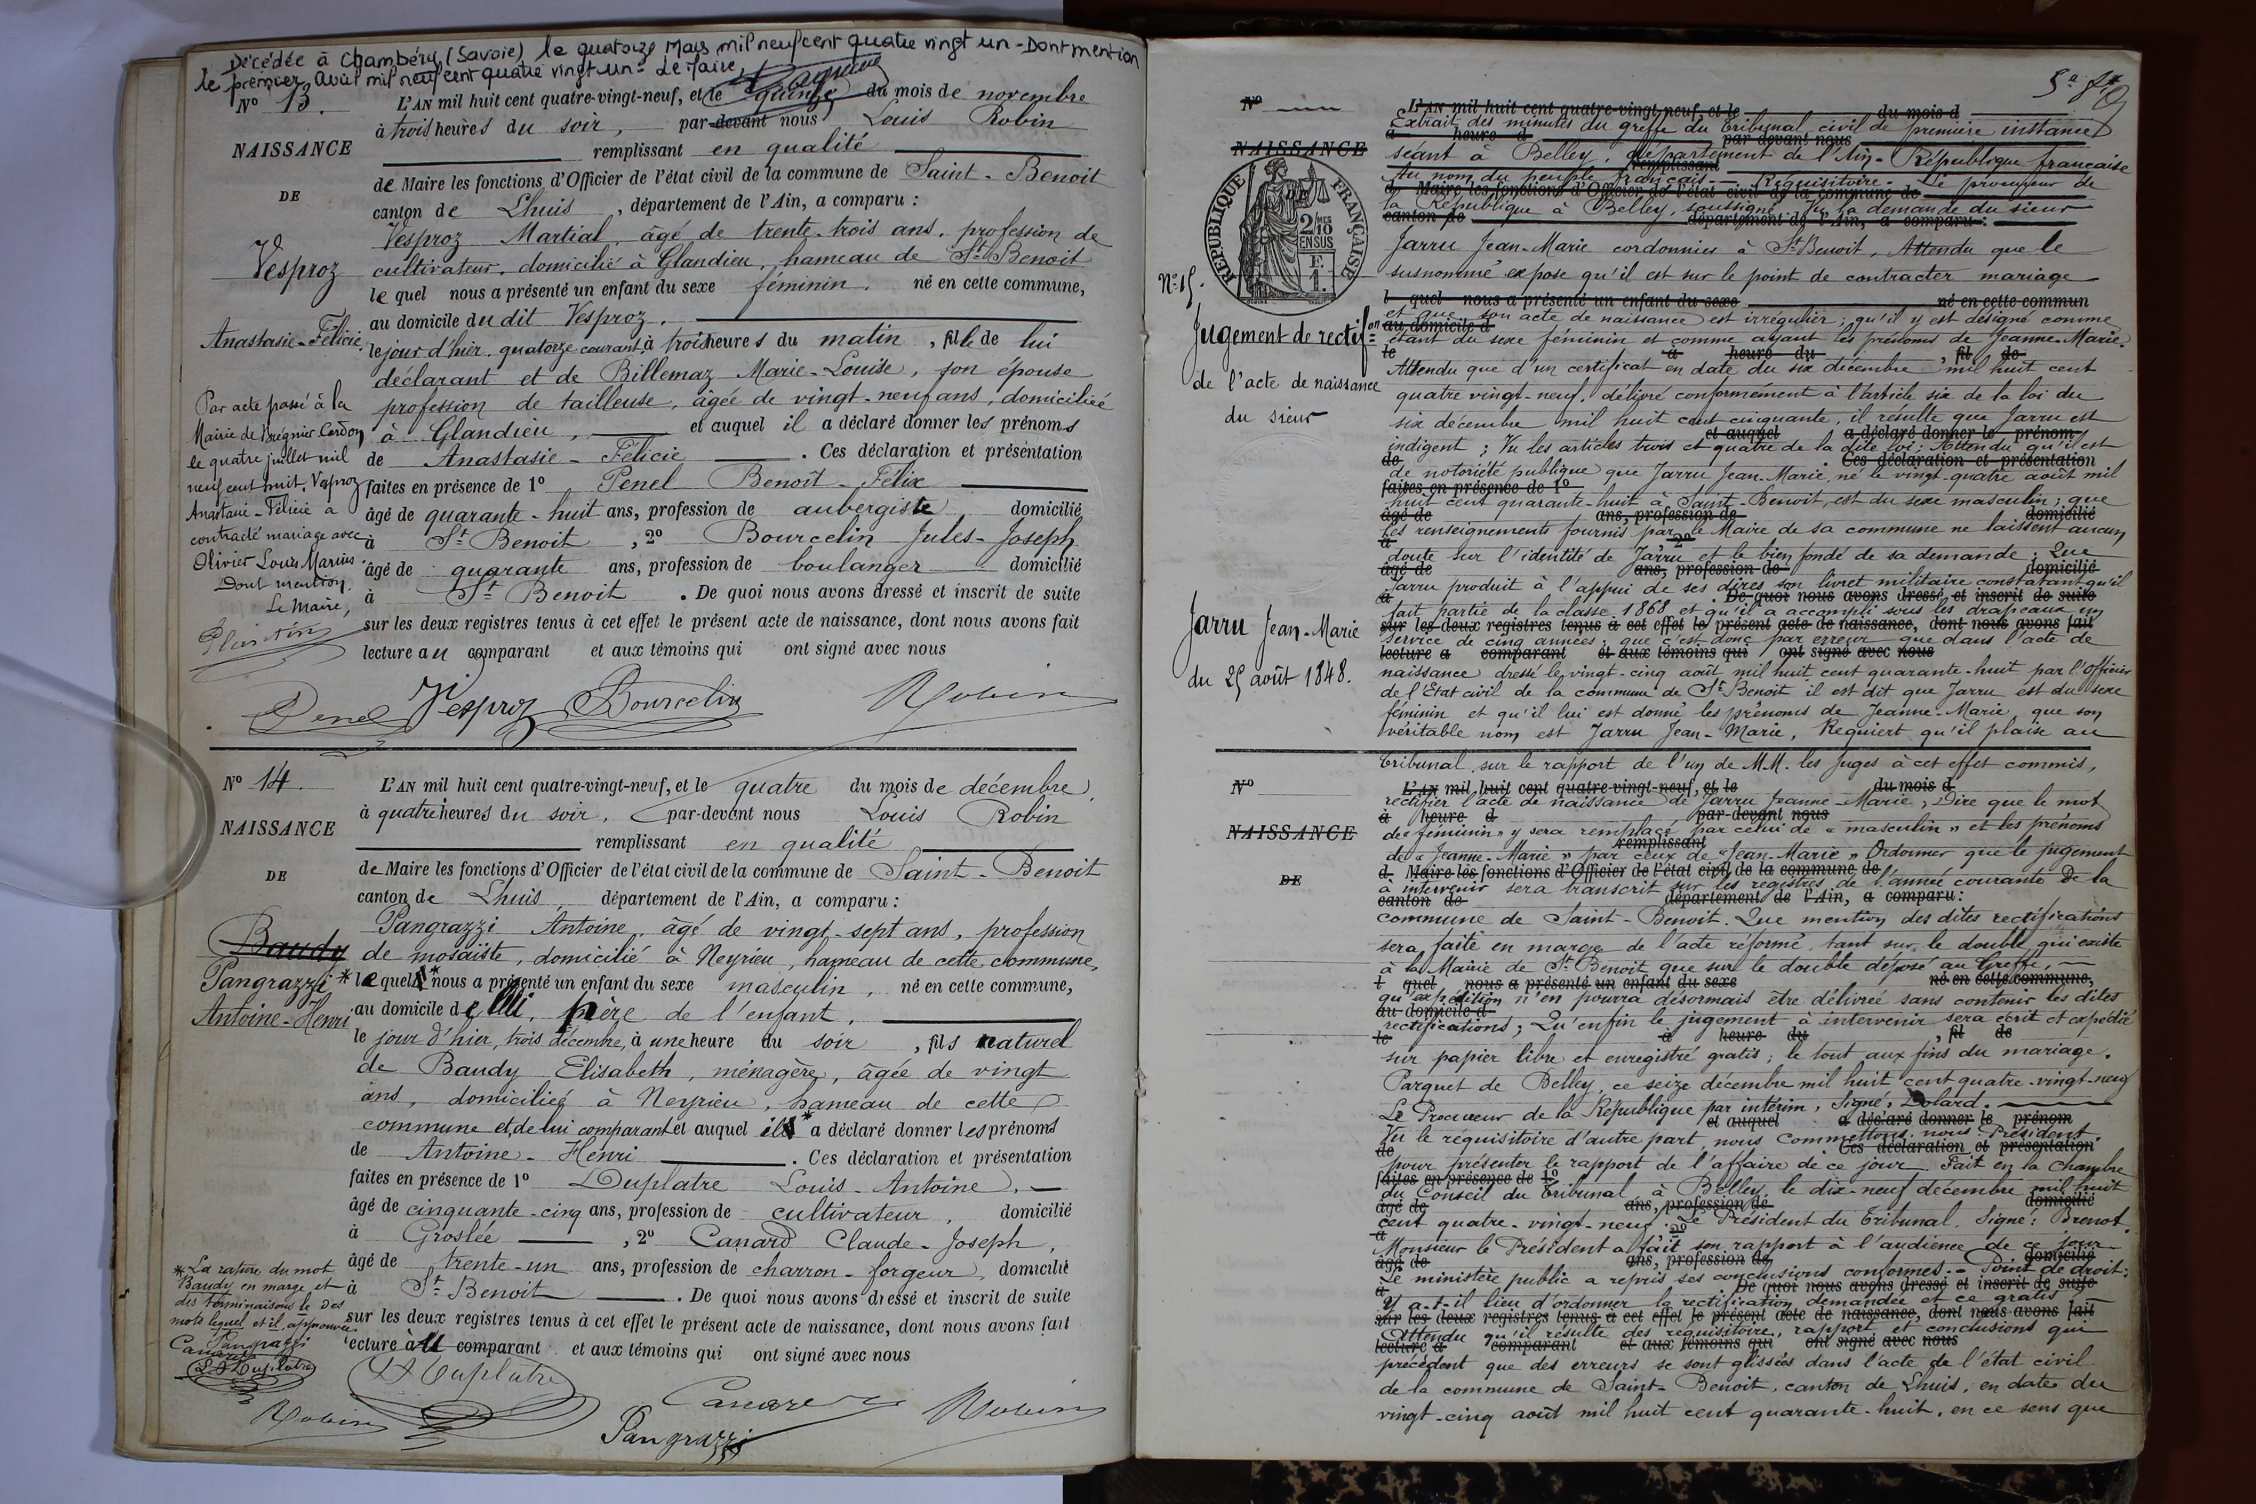 Décédée à Chambéry (Savoie) le quatorze Mars mil neuf cent quatre vingt un - Dont mention
le premier Avril mil neuf cent quatre vingt un - Le Maire,
Nº 13.
NAISSANCE
DE
Vesproz
Anastasie-Félicie
Par acte passé à la
Mairie de Brégnier Cordon
le quatre juillet mil
neuf cent huit, Vesproz
Anastasie-Félicie a
contracté mariage avec
Olivier Louis Marius.
Dont mention
Le Maire,
L'AN mil huit cent quatre-vingt-neuf, et le quinze du mois de novembre
à trois heures du soir, par-devant nous Louis Robin
remplissant en qualité
de Maire les fonctions d'Officier de l'état civil de la commune de Saint-Benoit
canton de Lhuis, département de l'Ain, a comparu :
Vesproz Martial, âgé de trente-trois ans, profession de
cultivateur, domicilié à Glandieu, hameau de St Benoit
lequel nous a présenté un enfant du sexe féminin, né en cette commune,
au domicile du dit Vesproz.
le jour d'hier, quatorze courant, à trois heures du matin, fille de lui
déclarant et de Billemaz Marie-Louise, son épouse
profession de tailleuse, âgée de vingt-neuf ans, domiciliée
à Glandieu, et auquel il a déclaré donner les prénoms
de Anastasie-Félicie. Ces déclaration et présentation
faites en présence de 1º Penel Benoît-Félix
âgé de quarante-huit ans, profession de aubergiste domicilié
à St Benoit, 2º Bourcelin Jules-Joseph
âgé de quarante ans, profession de boulanger domicilié
à St Benoit. De quoi nous avons dressé et inscrit de suite
sur les deux registres tenus à cet effet le présent acte de naissance, dont nous avons fait
lecture au comparant et aux témoins qui ont signé avec nous
Penel Vesproz Bourcelin Robin
Nº 14.
NAISSANCE
DE
Baudy
Pangrazzi *
Antoine-Henri
L'AN mil huit cent quatre-vingt-neuf, et le quatre du mois de décembre
à quatre heures du soir, par-devant nous Louis Robin
remplissant en qualité
de Maire les fonctions d'Officier de l'état civil de la commune de Saint-Benoit
canton de Lhuis, département de l'Ain, a comparu :
Pangrazzi Antoine, âgé de vingt-sept ans, profession
de mosaïste, domicilié à Neyrieu, hameau de cette commune,
lequel * nous a présenté un enfant du sexe masculin, né en cette commune,
au domicile de lui, père de l'enfant,
le jour d'hier, trois décembre, à une heure du soir, fils naturel
de Baudy Elisabeth, ménagère, âgée de vingt
ans, domiciliée à Neyrieu, hameau de cette
commune et de lui comparant et auquel il * a déclaré donner les prénoms
de Antoine-Henri. Ces déclaration et présentation
faites en présence de 1º Duplatre Louis-Antoine,
âgé de cinquante-cinq ans, profession de cultivateur, domicilié
à Groslée, 2º Canard Claude-Joseph,
âgé de trente-un ans, profession de charron-forgeur, domicilié
à St Benoit. De quoi nous avons dressé et inscrit de suite
sur les deux registres tenus à cet effet le présent acte de naissance, dont nous avons fait
lecture au comparant et aux témoins qui ont signé avec nous
* La rature du mot
Baudy en marge et
des terminaisons le des
mots lequel et il, approuvées
Pangrazzi
Canard
LA Duplatre
Robin
LA Duplatre
Canard
Pangrazzi
Robin
5e ft
Nº
NAISSANCE
RÉPUBLIQUE FRANÇAISE
2 MES 2/10 EN SUS
F. 1.
Nº 15.
Jugement de rectifon
de l'acte de naissance
du sieur
Jarru Jean-Marie
du 25 août 1848.
L'AN mil huit cent quatre-vingt-neuf, et le du mois d
Extrait des minutes du greffe du Tribunal civil de première instance
à heure d par devant nous
séant à Belley, département de l'Ain - République française
remplissant
Au nom du peuple français - Réquisitoire - Le procureur de
d Maire les fonctions d'Officier de l'état civil de la commune de
la République à Belley, soussigné, Vu la demande du sieur
canton de département de l'Ain, a comparu :
Jarru Jean-Marie cordonnier à St Benoit, Attendu que le
susnommé expose qu'il est sur le point de contracter mariage
l quel nous a présenté un enfant du sexe né en cette commun
et que son acte de naissance est irrégulier ; qu'il y est désigné comme
au domicile d
étant du sexe féminin et comme ayant les prénoms de Jeanne-Marie.
le à heure du , fil de
Attendu que d'un certificat en date du six décembre mil huit cent
quatre vingt-neuf, délivré conformément à l'article six de la loi du
six décembre mil huit cent cinquante, il résulte que Jarru est
et auquel a déclaré donner le prénom
indigent ; Vu les articles trois et quatre de la dite loi ; Attendu qu'il est
de Ces déclaration et présentation
de notoriété publique que Jarru Jean-Marie, né le vingt-quatre août mil
faites en présence de 1º
huit cent quarante-huit à Saint-Benoit, est du sexe masculin ; que
âgé de ans, profession de domicilié
les renseignements fournis par le Maire de sa commune ne laissent aucun
à 2º
doute sur l'identité de Jarru et le bien fondé de sa demande ; Que
âgé de ans, profession de domicilié
Jarru produit à l'appui de ses dires son livret militaire constatant qu'il
à De quoi nous avons dressé et inscrit de suite
fait partie de la classe 1868 et qu'il a accompli sous les drapeaux un
sur les deux registres tenus à cet effet le présent acte de naissance, dont nous avons fait
service de cinq années ; que c'est donc par erreur que dans l'acte de
lecture a comparant et aux témoins qui ont signé avec nous
naissance dressé le vingt-cinq août mil huit cent quarante-huit par l'officier
de l'Etat civil de la commune de St Benoit il est dit que Jarru est du sexe
féminin et qu'il lui est donné les prénoms de Jeanne-Marie, que son
véritable nom est Jarru Jean-Marie, Requiert qu'il plaise au
Tribunal, sur le rapport de l'un de MM. les Juges à cet effet commis,
Nº
NAISSANCE
DE
L'AN mil huit cent quatre-vingt-neuf, et le du mois d
rectifier l'acte de naissance de Jarru Jeanne-Marie, Dire que le mot
à heure d par-devant nous
de « féminin » y sera remplacé par celui de « masculin » et les prénoms
remplissant
de « Jeanne-Marie » par ceux de « Jean-Marie » Ordonner que le jugement
d Maire les fonctions d'Officier de l'état civil de la commune de
à intervenir sera transcrit sur les registres de l'année courante de la
canton de département de l'Ain, a comparu :
commune de Saint-Benoit. Que mention des dites rectifications
sera faite en marge de l'acte réformé, tant sur le double qui existe
à la Mairie de St Benoit que sur le double déposé au Greffe,
l quel nous a présenté un enfant du sexe né en cette commune,
qu'expédition n'en pourra désormais être délivrée sans contenir les dites
au domicile d
rectifications ; Qu'enfin le jugement à intervenir sera écrit et expédié
le à heure du , fil de
sur papier libre et enregistré gratis ; le tout aux fins du mariage.
Parquet de Belley, ce seize décembre mil huit cent quatre-vingt-neuf
Le Procureur de la République par intérim, Signé : Dolard.
et auquel a déclaré donner le prénom
Vu le réquisitoire d'autre part, nous commettons, nous Président
de Ces déclaration et présentation
pour présenter le rapport de l'affaire de ce jour. Fait en la chambre
faites en présence de 1º
du Conseil du Tribunal à Belley, le dix-neuf décembre mil huit
âgé de ans, profession de domicilié
cent quatre-vingt-neuf. Le Président du Tribunal, Signé : Brenot.
à 2º
Monsieur le Président a fait son rapport à l'audience de ce jour
âgé de ans, profession de domicilié
Le ministère public a repris ses conclusions conformes. - Point de droit :
à De quoi nous avons dressé et inscrit de suite
Y a-t-il lieu d'ordonner la rectification demandée et ce gratis
sur les deux registres tenus à cet effet le présent acte de naissance, dont nous avons fait
Attendu qu'il résulte des réquisitoire, rapport et conclusions qui
lecture à comparant et aux témoins qui ont signé avec nous
précèdent que des erreurs se sont glissées dans l'acte de l'état civil
de la commune de Saint-Benoit, canton de Lhuis, en date du
vingt-cinq août mil huit cent quarante-huit, en ce sens que